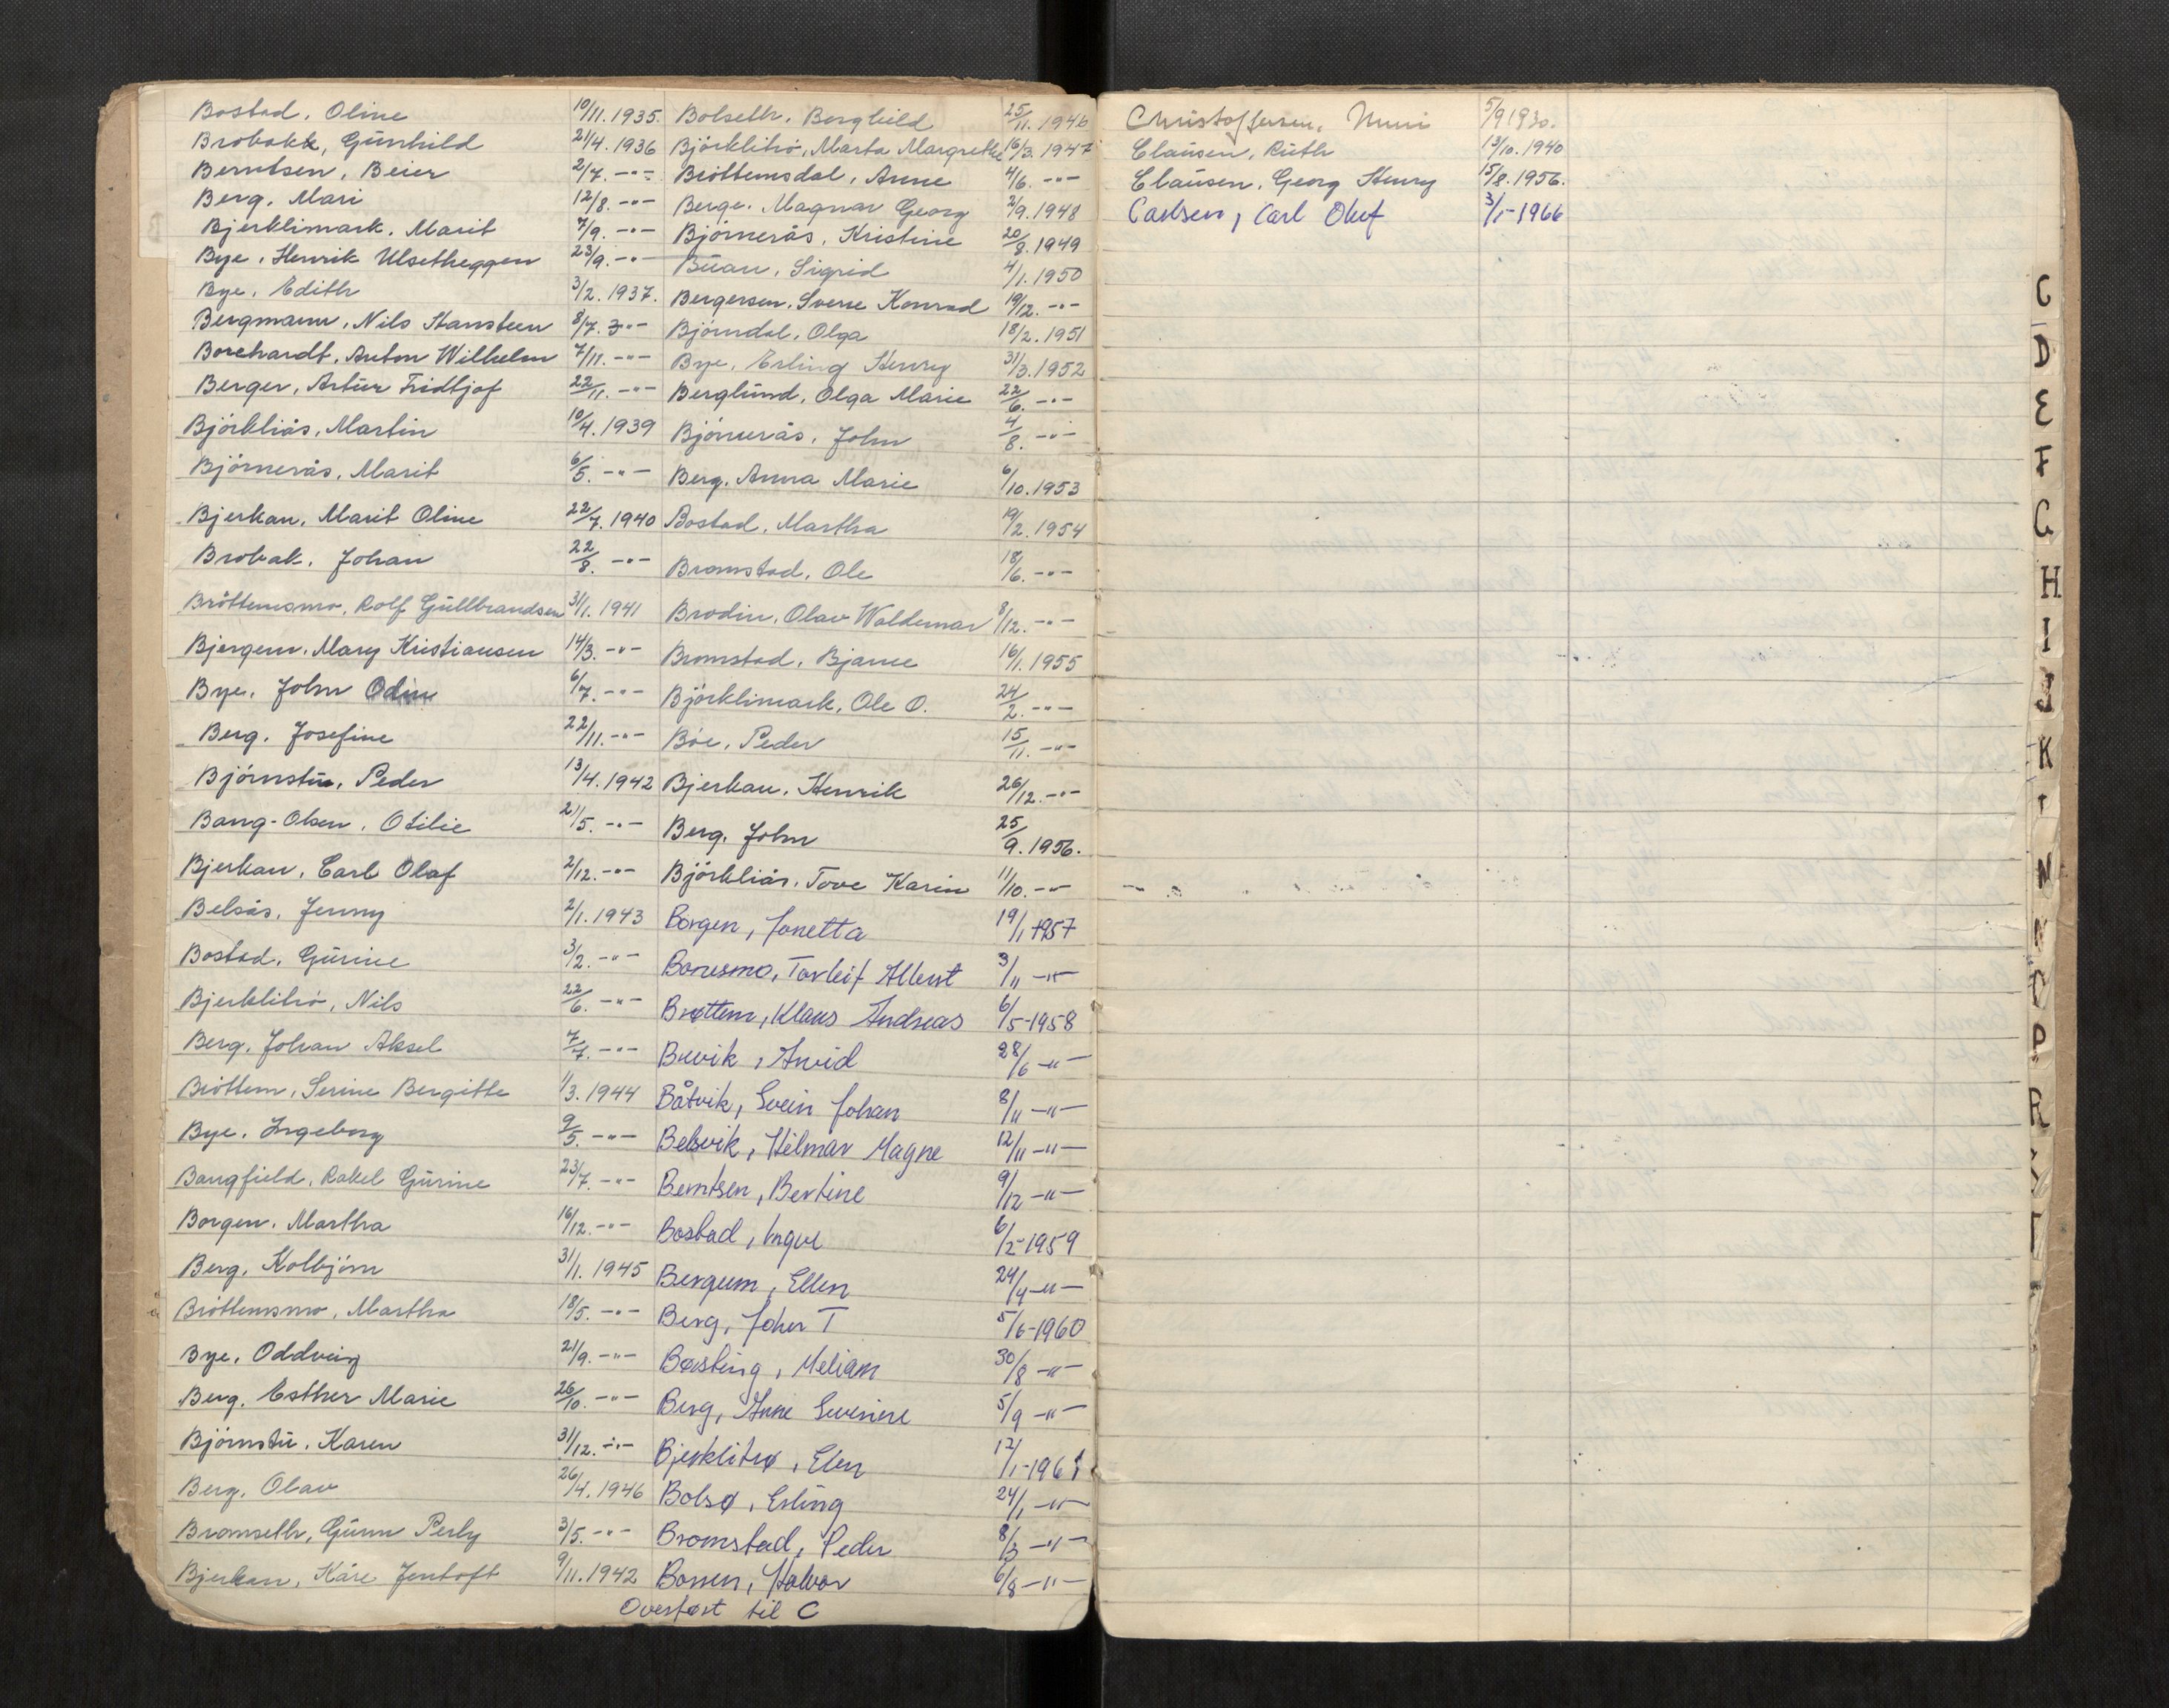 Bostad, Oline 10/11. 1935.
Brobakk, Günhild 21/4. 1936
Berntsen, Beier 2/7. -"-
Berg, Mari 12/8. -"-
Bjerklimark, Marit 7/9. -"-
Bye, Henrik Ulsetheggen 23/9. -"-
Bye, Edith 3/2. 1937.
Bergmann, Nils Hansteen 8/7. -"-
Borchardt, Anton Wilhelm 7/11. -"-
Berger, Artür Fridtjof 22/11. -"-
Björkliås, Martin 10/4. 1939
Björnerås, Marit 6/5. -"-
Bjerkan, Marit Oline 22/7. 1940
Brobak, Johan 22/8. -"-
Bröttemsmo, Rolf Güllbrandsen 31/1. 1941
Bjergem, Mary Kristiansen 14/3. -"-
Bye, John Odin 6/7. -"-
Berg, Josefine 22/11. -"-
Björnstü, Peder 13/4. 1942
Bang-Olsen, Otilie 21/5. -"-
Bjerkan, Carl Olaf 2/12. -"-
Belsås, Jenny 2/1. 1943
Bostad, Gürine 3/2. -"-
Bjerklitrö, Nils 22/6. -"-
Berg, Johan Aksel 7/7. -"-
Bröttem, Serine Bergitte 1/3. 1944
Bye, Ingeborg 9/5. -"-
Bangfield, Rakel Gürine 23/7. -"-
Borgen, Martha 16/12. -"-
Berg, Kolbjörn 31/1. 1945
Bröttemsmo, Martha 18/5. -"-
Bye, Oddveig 21/9. -"-
Berg, Esther Marie 26/10. -"-
Björnstü, Karen 31/12. -"-
Berg, Olav 26/4. 1946
Bromseth, Günn Perly 3/5. -"-
Bjerkan, Kåre Jentoft 9/11. 1942
Bolseth, Bergheild 25/11. 1946
Björklitrö, Marta Margrethe 16/3. 1947
Bröttemsdal, Anne 4/6. -"-
Berge, Magnar Georg 2/9. 1948
Björnerås, Kristine 20/8. 1949
Büan, Sigrid 4/1. 1950
Bergersen, Sverre Konrad 19/12. -"-
Björndal, Olga 18/2. 1951
Bye, Erling Henry 31/3. 1952
Berglünd, Olga Marie 22/6. -"-
Björnerås, John 4/8. -"-
Berg, Anna Marie 6/10. 1953
Bostad, Martha 19/2. 1954
Bromstad, Ole 18/6. -"-
Brodin, Olav Waldemar 8/12. -"-
Bromstad, Bjarne 16/1. 1955
Björklimark, Ole O. 24/2. -"-
Böe, Peder 15/11. -"-
Bjerkan, Henrik 26/12. -"-
Berg, John 25/9. 1956.
Björkliås, Tove Karin 11/10. -"-
Borgen, Jonetta 19/1 1957
Torleif Albert 3/11 -"-
Brøttem, Klaus Andreas 6/5-1958
Brevik, Arvid 28/6 -"-
Båtvik, Svein Johan 8/11 -"-
Belsvik, Hilmar Magne 12/11 -"-
Berntsen, Bertine 9/12 -"-
Bostad, Ingve 6/2-1959
Bergum, Ellen 24/4 -"-
Berg, Joher T 5/6-1960
Børsting, Meliam 30/8 -"-
Berg, Anne Severine 5/9 -"-
Bjerklitrø, Elen 12/1-1961
Bolsø, Erling 24/1 -"-
Bromstad, Peder 8/3 -"-
Borren, Halvor 6/8 -"-
Overført til C
Christoffersen, 5/9 1930.
Claüsen, Rüth 13/10. 1940
Claüsen, Georg Henry 15/8. 1956.
Carlsen, Carl Oluf 3/1-1966
C
D
E
F
G
H
I
J
K
N
O
P
R
T